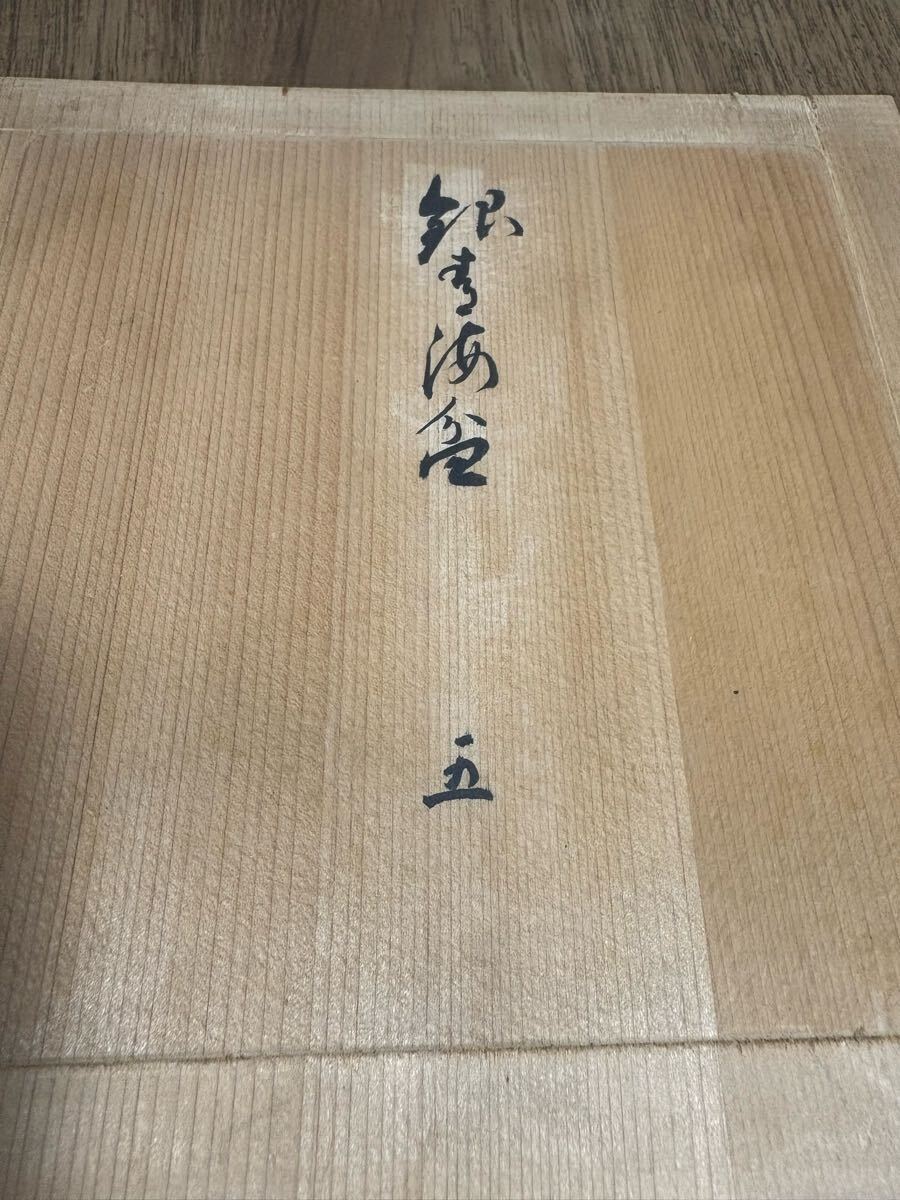 銀青海盆
五